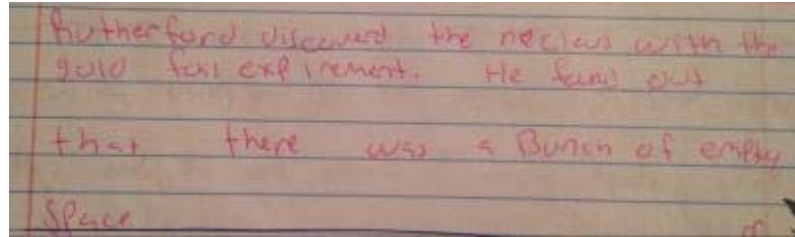 Rutherford discoverd the necleus with the
gold foil expirement. He found out
that there was a Bunch of empty
Space